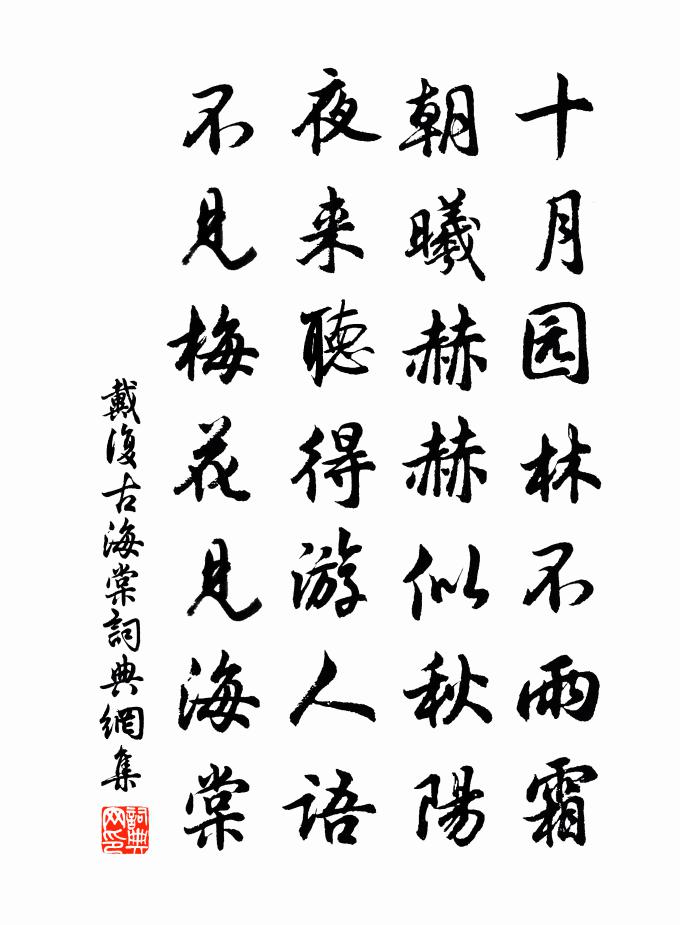 十月园林不雨霜
朝曦赫赫似秋陽
夜来聽得游人語
不見梅花見海棠
戴復古海棠詞典網集
詞典
网印